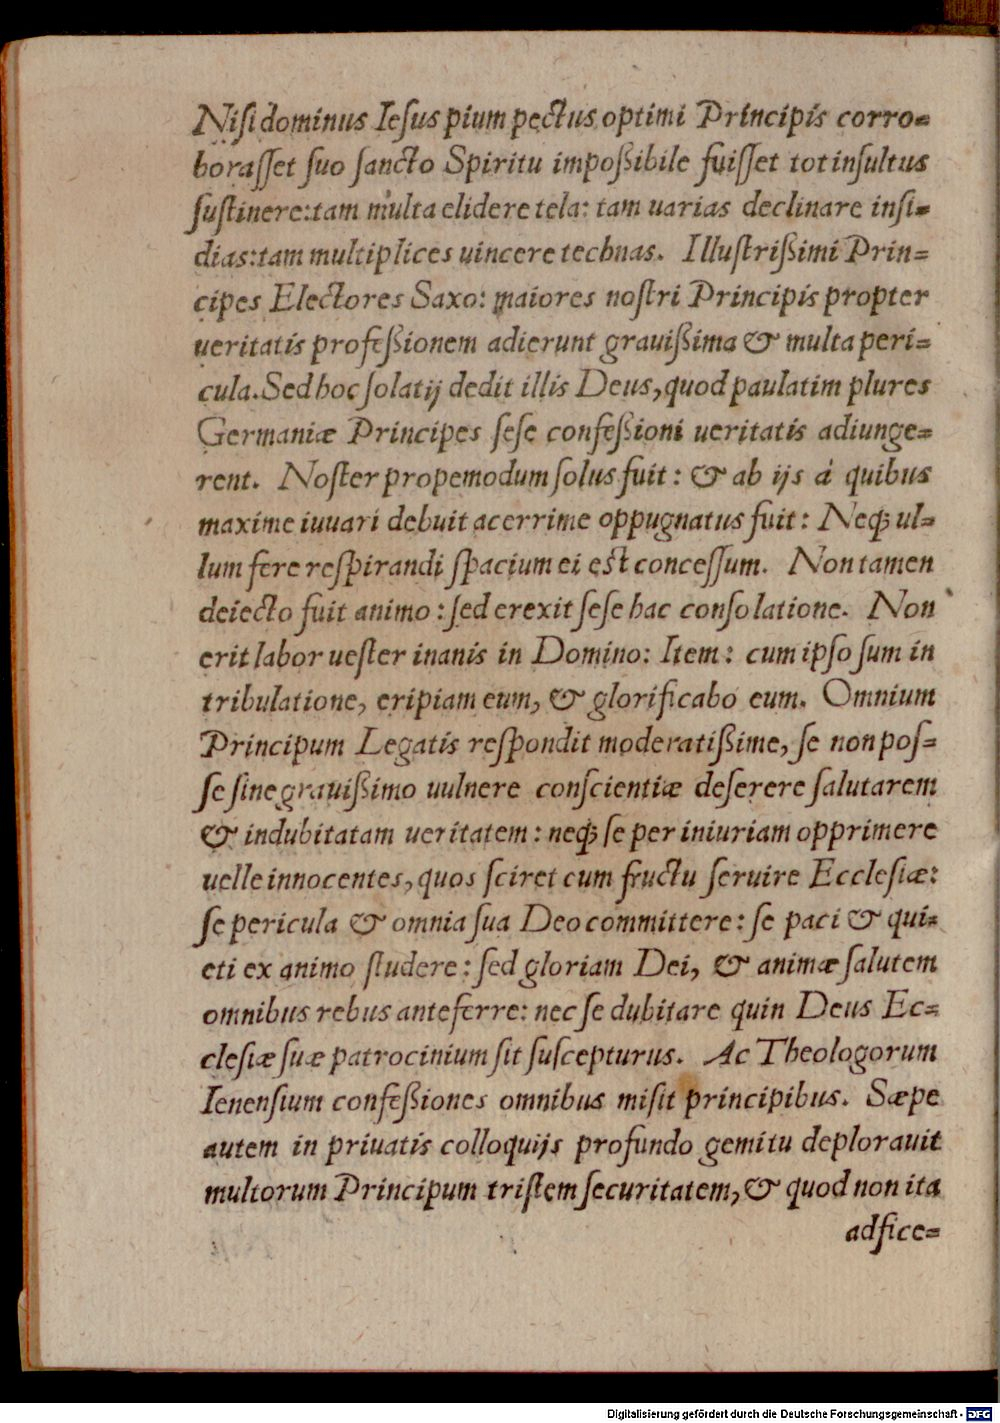 Niſi dominus Ieſus pium pectus optimi Principis corro=
boraſſet ſuo ſancto Spiritu impoßibile fuiſſet tot inſultus
ſuſtinere: tam multa elidere tela: tam uarias declinare inſi=
dias: tam multiplices uincere technas. Illuſtrißimi Prin=
cipes Electores Saxo: maiores noſtri Principis propter
ueritatis profeßionem adierunt grauißima & multa peri=
cula. Sed hoc ſolatij dedit illis Deus, quod paulatim plures
Germaniæ Principes ſeſe confeßioni ueritatis adiunge=
rent. Noſter propemodum ſolus fuit: & ab ijs à quibus
maxime iuuari debuit acerrime oppugnatus fuit: Neqꝫ ul=
lum fere reſpirandi ſpacium ei est conceſſum. Non tamen
deiecto fuit animo: ſed erexit ſeſe hac conſolatione. Non
erit labor ueſter inanis in Domino: Item: cum ipſo ſum in
tribulatione, eripiam eum, & glorificabo eum. Omnium
Principum Legatis reſpondit moderatißime, ſe non poſ=
ſe ſine grauißimo uulnere conſcientiæ deſerere ſalutarem
& indubitatam ueritatem: neqꝫ ſe per iniuriam opprimere
uelle innocentes, quos ſciret cum fructu ſeruire Eccleſiæ:
ſe pericula & omnia ſua Deo committere: ſe paci & qui=
eti ex animo ſtudere: ſed gloriam Dei, & animæ ſalutem
omnibus rebus anteferre: nec ſe dubitare quin Deus Ec=
cleſiæ ſuæ patrocinium ſit ſuſcepturus. Ac Theologorum
Ienenſium confeßiones omnibus miſit principibus. Sæpe
autem in priuatis colloquijs profundo gemitu deplorauit
multorum Principum triſtem ſecuritatem, & quod non ita
adfice=
Digitalisierung gefördert durch die Deutsche Forschungsgemeinschaft - DFG